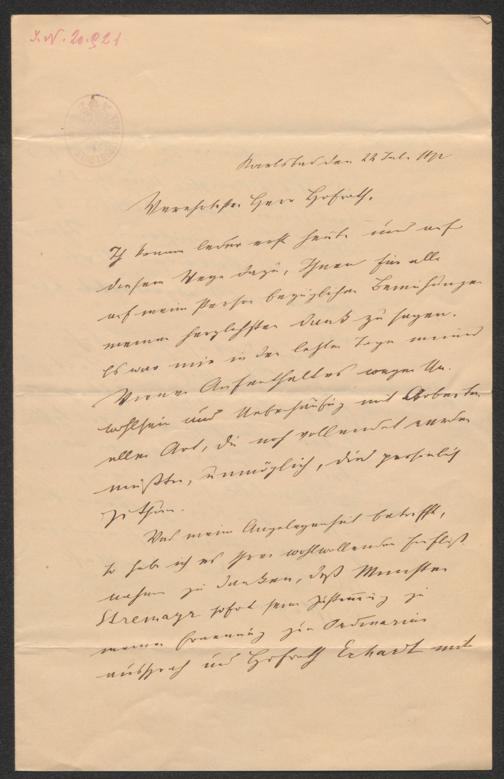 I.N. 20.921
Karlsbad den 22 Juli 1872
Verehrtester Herr Hofrath,
Ich komme leider erst heute und auf
diesem Wege dazu, Ihnen für alle
auf meine Person bezüglichen Bemühungen
meinen herzlichsten Dank zu sagen.
Es war mir in den letzten Tagen meines
Wiener Aufenthaltes wegen Un-
wohlsein und Ueberhäufung mit Arbeiten
aller Art, die noch vollendet werden
mußten, unmöglich, dies persönlich
zu thun.
Was meine Angelegenheit betrifft,
so habe ich es Ihrer wohlwollenden
nahme zu danken, daß Minister
Stremayr sofort seine Zustimmung zu
meiner Ernennung zum Ordinarius
aussprach und Hofrath Erhardt mit